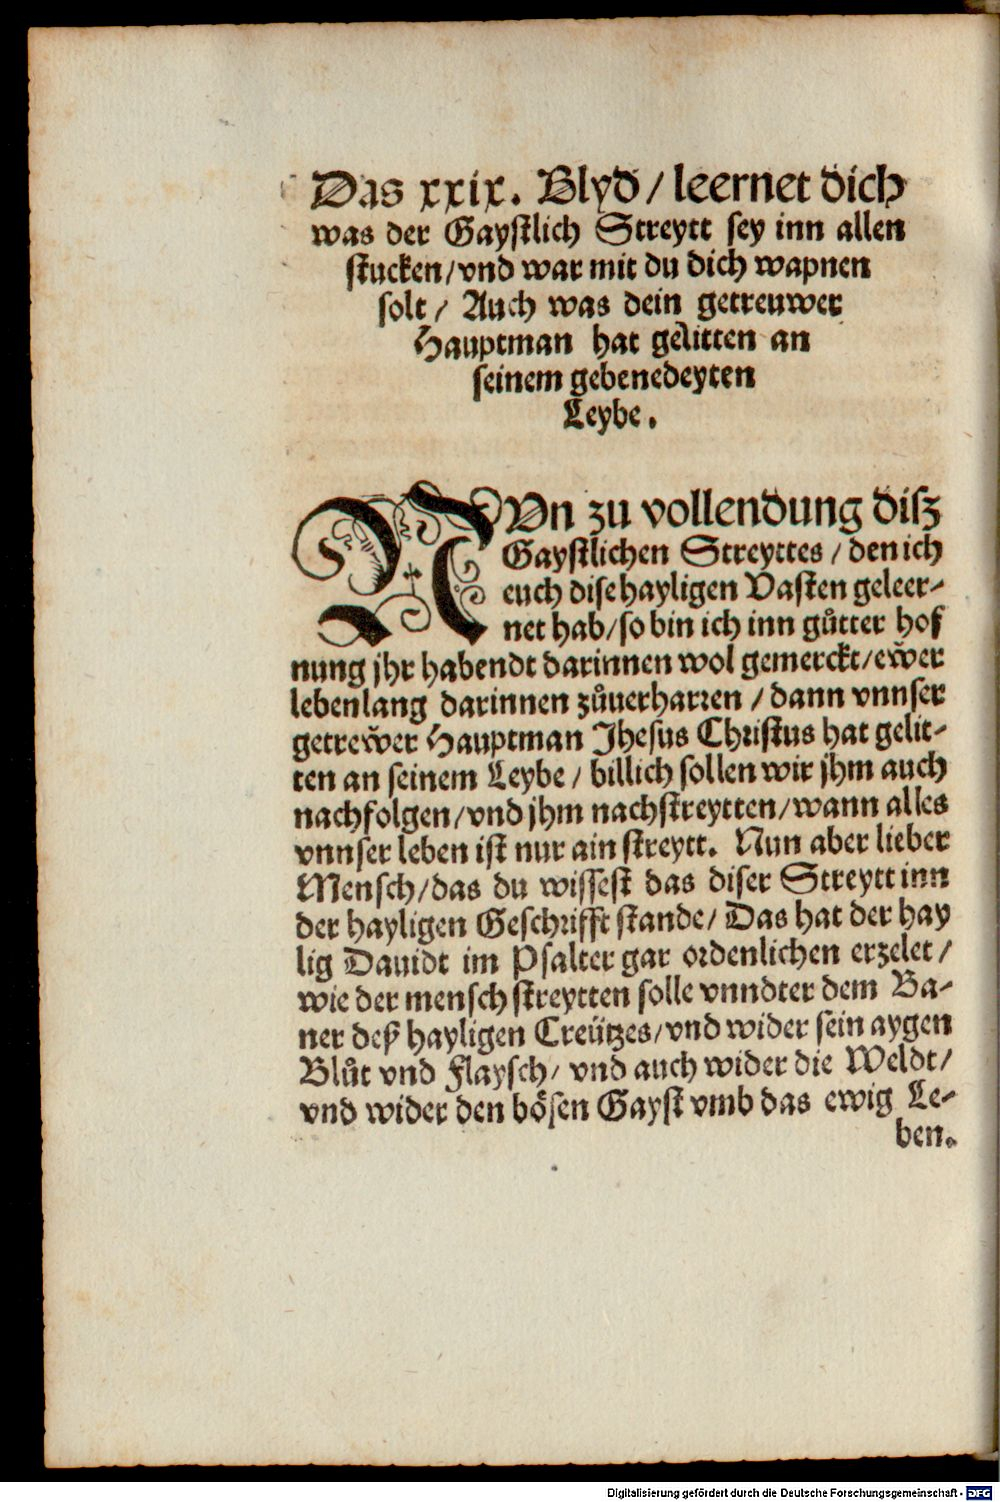 Das xxix. Blyd / leernet dich
was der Gaystlich Streytt sey inn allen
stucken/vnd war mit du dich wapnen
solt / Auch was dein getreuwer
Hauptman hat gelitten an
seinem gebenedeyten
Leybe.
NVn zu vollendung disz
Gaystlichen Streyttes / den ich
euch dise hayligen Vasten geleer-
net hab/so bin ich inn gůtter hof
nung jhr habendt darinnen wol gemerckt/ew̃er
lebenlang darinnen zůuerharren / dann vnnser
getrew̃er Hauptman Jhesus Christus hat gelit-
ten an seinem Leybe / billich sollen wir jhm auch
nachfolgen/vnd jhm nachstreytten/wann alles
vnnser leben ist nur ain streytt. Nun aber lieber
Mensch/das du wissest das diser Streytt inn
der hayligen Geschrifft stande/ Das hat der hay
lig Dauidt im Psalter gar ordenlichen erzelet /
wie der mensch streytten solle vnndter dem Ba-
ner deß hayligen Creützes/vnd wider sein aygen
Blůt vnd Flaysch/ vnd auch wider die Weldt/
vnd wider den bösen Gayst vmb das ewig Le-
ben.
Digitalisierung gefördert durch die Deutsche Forschungsgemeinschaft - DFG